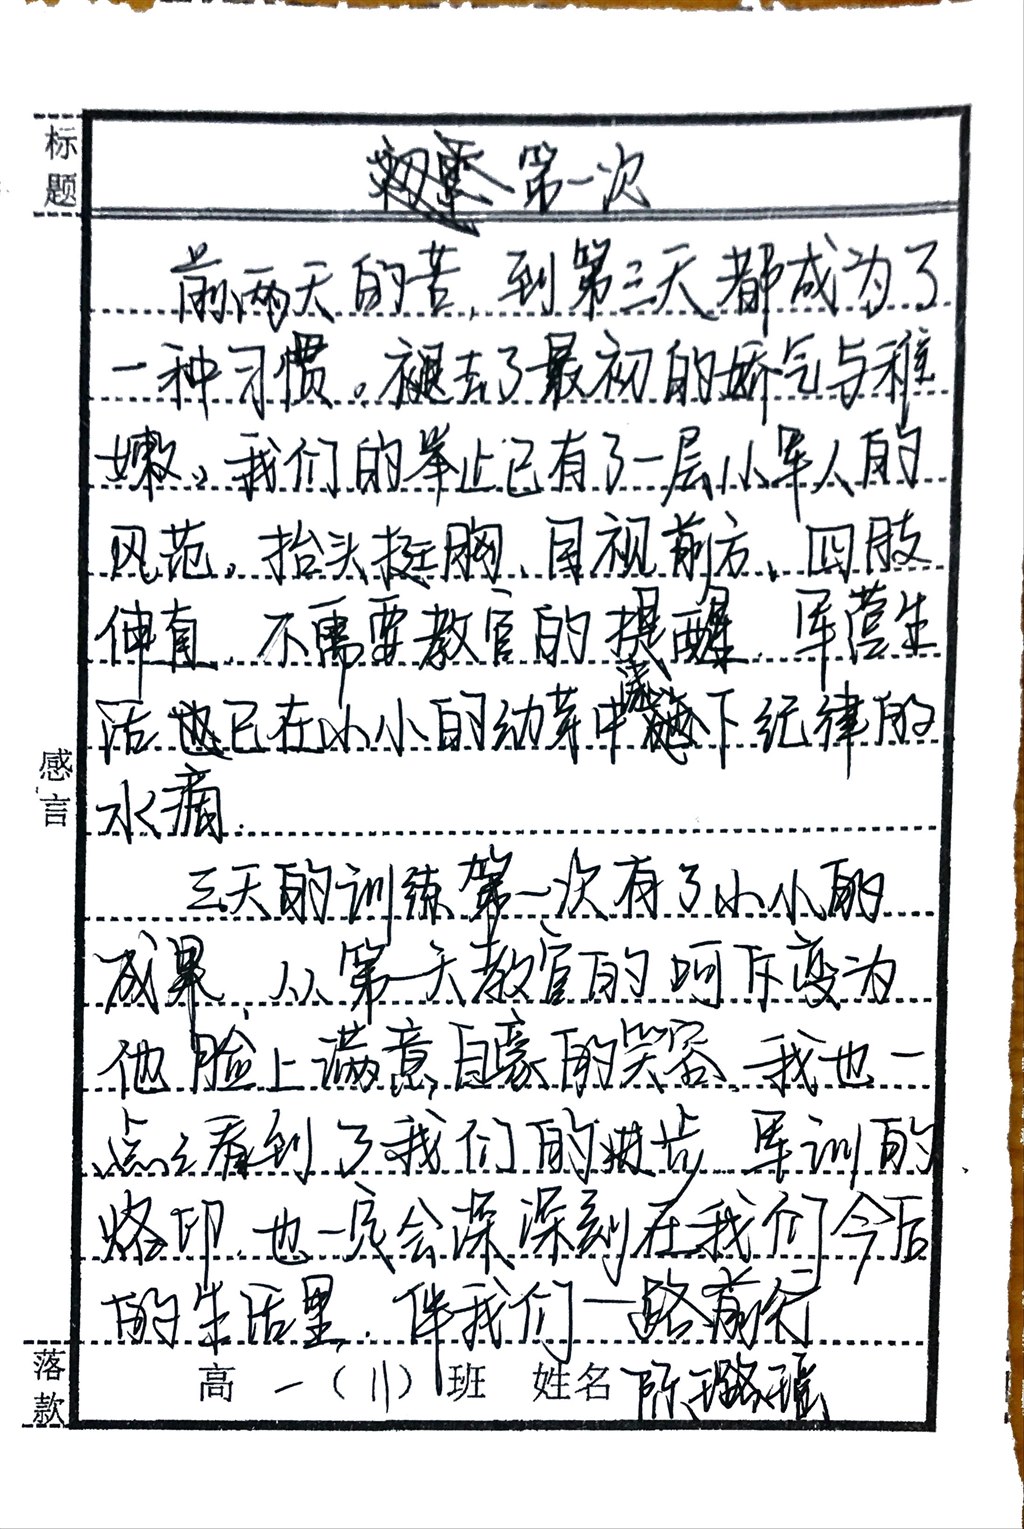 标题
第一次
前两天的苦,到第三天都成为了
一种习惯。褪去了最初的娇气与稚
嫩。我们的举止已有了一层小军人的
风范。抬头挺胸、目视前方、四肢
伸直,不需要教官的提醒.军营生
活也已在小小的幼芽中滴下纪律的
水滴.
三天的训练第一次有了小小的
成果,从第一天教官的呵斥变为
他脸上满意,自豪的笑容,我也一
点点看到了我们的进步.军训的
烙印,也一定会深深刻在我们今后
的生活里,伴我们一路前行
感言
落款
高一(11)班 姓名 陈璐瑶